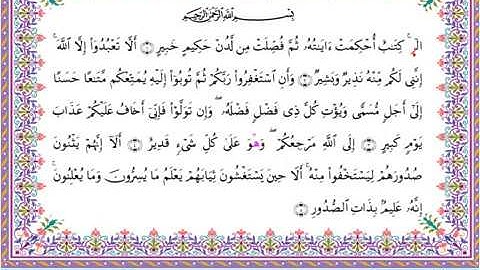 بِسْمِ اللَّهِ الرَّحْمَٰنِ الرَّحِيمِ
الٓر ۚ كِتَٰبٌ أُحْكِمَتْ ءَايَٰتُهُۥ ثُمَّ فُصِّلَتْ مِن لَّدُنْ حَكِيمٍ خَبِيرٍ ۝ أَلَّا تَعْبُدُوٓا۟ إِلَّا ٱللَّهَ ۚ
إِنَّنِى لَكُم مِّنْهُ نَذِيرٌ وَبَشِيرٌ ۝ وَأَنِ ٱسْتَغْفِرُوا۟ رَبَّكُمْ ثُمَّ تُوبُوٓا۟ إِلَيْهِ يُمَتِّعْكُم مَّتَٰعًا حَسَنًا
إِلَىٰٓ أَجَلٍ مُّسَمًّى وَيُؤْتِ كُلَّ ذِى فَضْلٍ فَضْلَهُۥ ۖ وَإِن تَوَلَّوْا۟ فَإِنِّىٓ أَخَافُ عَلَيْكُمْ عَذَابَ
يَوْمٍ كَبِيرٍ ۝ إِلَى ٱللَّهِ مَرْجِعُكُمْ ۖ وَهُوَ عَلَىٰ كُلِّ شَىْءٍ قَدِيرٌ ۝ أَلَآ إِنَّهُمْ يَثْنُونَ
صُدُورَهُمْ لِيَسْتَخْفُوا۟ مِنْهُ ۚ أَلَا حِينَ يَسْتَغْشُونَ ثِيَابَهُمْ يَعْلَمُ مَا يُسِرُّونَ وَمَا يُعْلِنُونَ ۚ
إِنَّهُۥ عَلِيمٌۢ بِذَاتِ ٱلصُّدُورِ ۝